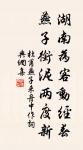 湖南爲客動經春
燕子銜泥兩度新
杜甫燕子來舟中作詞
典網集